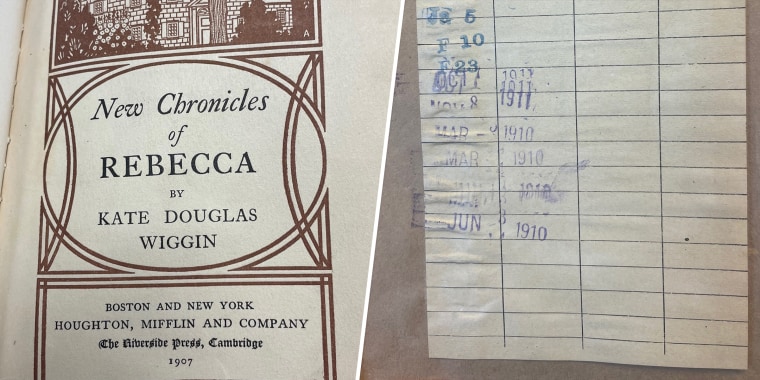 New Chronicles
of
REBECCA
BY
KATE DOUGLAS
WIGGIN
BOSTON AND NEW YORK
HOUGHTON, MIFFLIN AND COMPANY
The Riverside Press, Cambridge
1907
5
F 10
F 23
OCT 1911
NOV 8 1911
MAR - 1910
MAR 1910
1910
JUN 1910